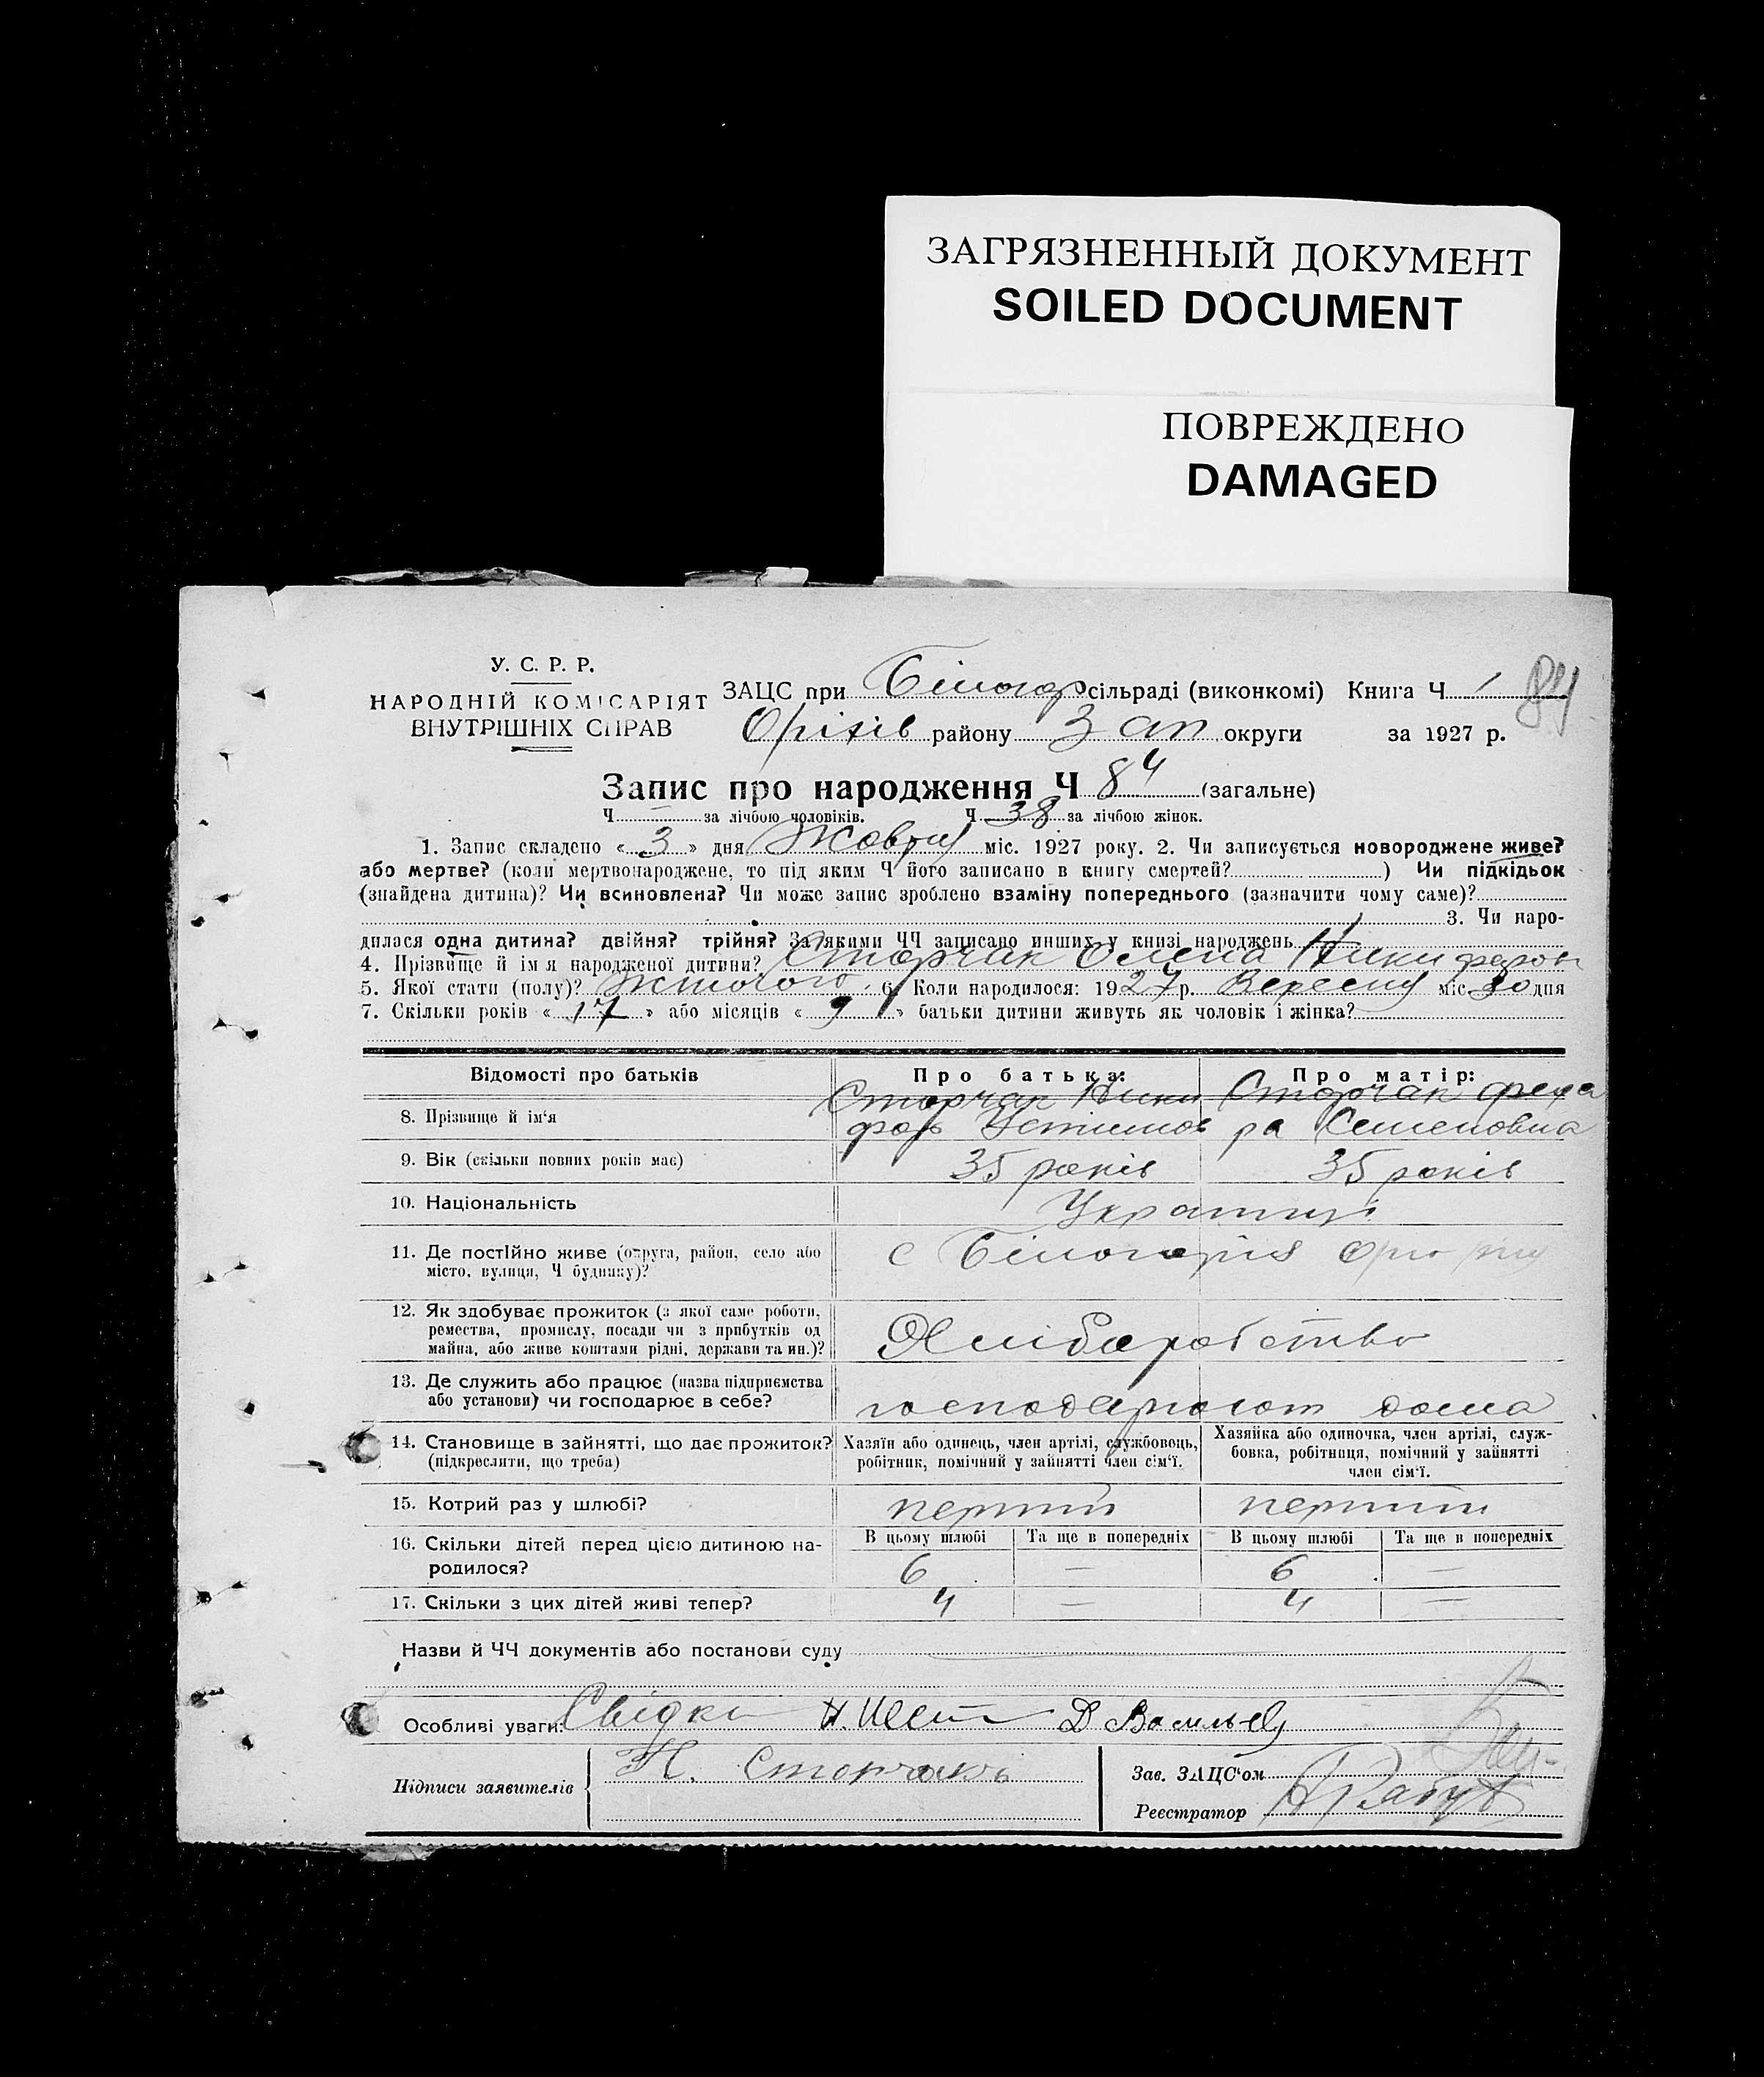 ЗАГРЯЗНЕННЫЙ ДОКУМЕНТ
SOILED DOCUMENT
ПОВРЕЖДЕНО
DAMAGED
У. С. Р. Р.
НАРОДНІЙ КОМІСАРІЯТ
ВНУТРІШНІХ СПРАВ
ЗАЦС при Білогор сільраді (виконкомі) Книга Ч 1 84
Оріхів району Зап округи за 1927 р.
Запис про народження Ч 84 (загальне)
Ч за лічбою чоловіків. Ч 38 за лічбою жінок.
1. Запис складено « 3 » дня Жовтня міс. 1927 року. 2. Чи записується новороджене живе?
або мертве? (коли мертвонароджене, то під яким Ч його записано в книгу смертей? ) Чи підкідьок
(знайдена дитина)? Чи всиновлена? Чи може запис зроблено взаміну попереднього (зазначити чому саме)?
3. Чи наро-
дилася одна дитина? двійня? трійня? За якими ЧЧ записано инших у книзі народжень
4. Прізвище й ім'я народженої дитини? Сторчак Олена Никифоров
5. Якої стати (полу)? Жіночого 6. Коли народилося: 1927 р. Вересня міс 30 дня
7. Скільки років « 17 » або місяців « 9 » батьки дитини живуть як чоловік і жінка?
Відомості про батьків Про батька: Про матір:
Сторчак Ники Сторчак Феда
8. Прізвище й ім'я фор Устимов ра Семеновна
9. Вік (скільки повних років має) 35 років 35 років
10. Національність Українці
11. Де постІйно живе (округа, район, село або
місто, вулиця, Ч будинку)? с Білогорія
12. Як здобуває прожиток (з якої саме роботи,
ремества, промислу, посади чи з прибутків од
майна, або живе коштами рідні, держави та ин.)? Хліборобство
13. Де служить або працює (назва підприємства
або установи) чи господарює в себе? господарюют дома
14. Становище в зайнятті, що дає прожиток?
(підкреслити, що треба)
Хазяїн або одинець, член артілі, службовець,
робітник, помічний у зайнятті член сім'ї.
Хазяйка або одиночка, член артілі, служ-
бовка, робітниця, помічний у зайнятті
член сім'ї.
15. Котрий раз у шлюбі? перший перший
В цьому шлюбі Та ще в попередніх В цьому шлюбі Та ще в попередніх
16. Скільки дітей перед цією дитиною на-
родилося? 6 — 6 —
17. Скільки з цих дітей живі тепер? 4 — 4 —
Назви й ЧЧ документів або постанови суду
Особливі уваги: Свідки Д Васильєв
Підписи заявителів Н. Сторчакъ
Зав. ЗАЦС'ом
Реєстратор